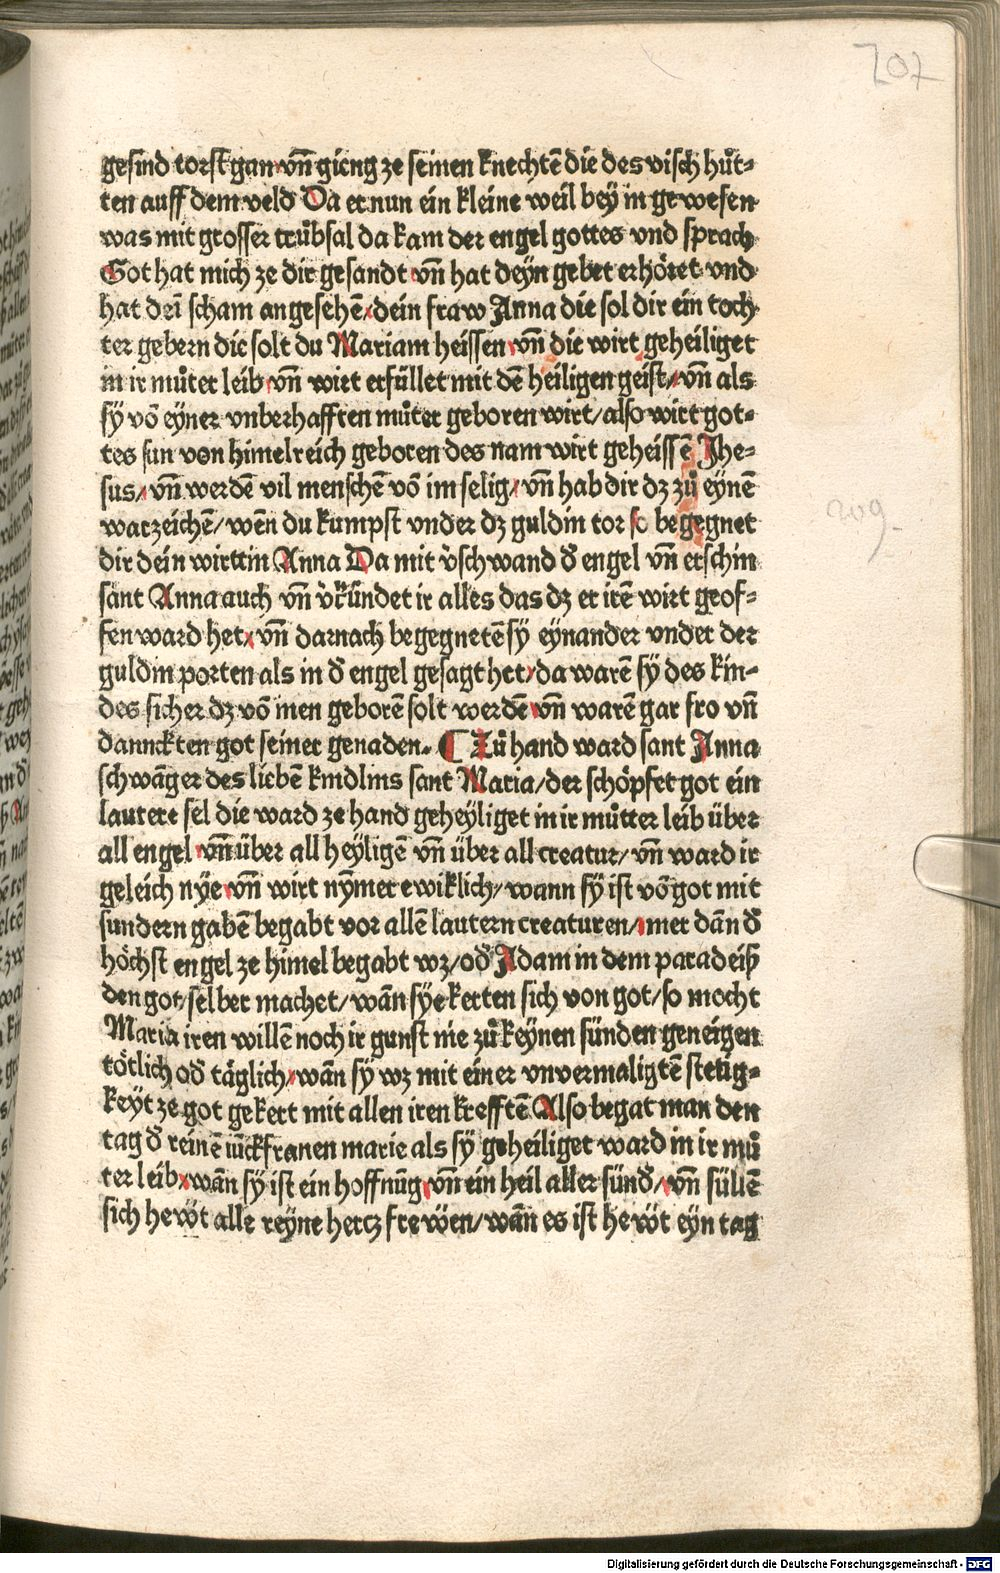 207
gesind torst gan vn̄ gieng ze seinen knechtē die des visch huͤt⸗
ten auff dem veld Da er nun ein kleine weil bey in gewesen
was mit grosser truͤbsal da kam der engel gottes vnd sprach
Got hat mich ze dir gesandt vn̄ hat deyn gebet erhoͤret vnd
hat dei scham angesehē/dein fraw Anna die sol dir ein toch
ter gebern die solt du Mariam heissen vn̄ die wirt geheiliget
in ir muͦter leib vn̄ wirt erfuͤllet mit dē heiligen geist/vn̄ als
sÿ vō eyner vnberhafften muͦter geboren wirt/also wirt got⸗
tes sun von himelreich geboren des nam wirt geheissē Jhe⸗
sus/vn̄ werdē vil menschē vō im selig/vn̄ hab dir dz zuͦ eynē
warzeichē/wen du kumpst vnder dz guldin tor so begegnet
dir dein wirttin Anna Da mit v̓schwand d̓ engel vn̄ erschin
sant Anna auch vn̄ v̓kuͤndet ir alles das dz er irē wirt geof⸗
fenward het/vn̄ darnach begegnetē sÿ eynander vnder der
guldin porten als in d̓ engel gesagt het/da warē sÿ des kin⸗
des sicher dz vō inen geborē solt werdē vn̄ warē gar fro vn̄
dannckten got seiner genaden. ¶ Zuͦhand ward sant Anna
schwāger des liebē kindlins sant Maria/der schoͤpfet got ein
lautere sel die ward ze hand geheyliget in ir muͦtter leib uͤber
all engel vn̄ uͤber all heÿligē vn̄ uͤber all creatur/vn̄ ward ir
geleich nÿe vn̄ wirt nȳmer ewiklich/wann sÿ ist vō got mit
sundern gabē begabt vor allē lautern creaturen/mer dān d̓
hoͤchst engel ze himel begabt wz/od̓ Adam in dem paradeiß
den got selber machet/wān sÿe kerten sich von got/so mocht
Maria iren willē noch ir gunst nie zuͦ keÿnen suͤnden geneigen
toͤtlich od̓ taͤglich/wān sÿ wz mit einer vnvermaligtē stetig⸗
keÿt ze got gekert mit allen iren krefftē Also begat man den
tag d̓ reinē iūckfrauen marie als sÿ geheiliget ward in ir muͦ
ter leib/wān sÿ ist ein hoffnūg vn̄ ein heil aller suͤnd̓/vn̄ suͤllē
sich hewt alle reÿne hercz frewen/wān es ist hewt eyn tag
209
Digitalisierung gefördert durch die Deutsche Forschungsgemeinschaft - DFG